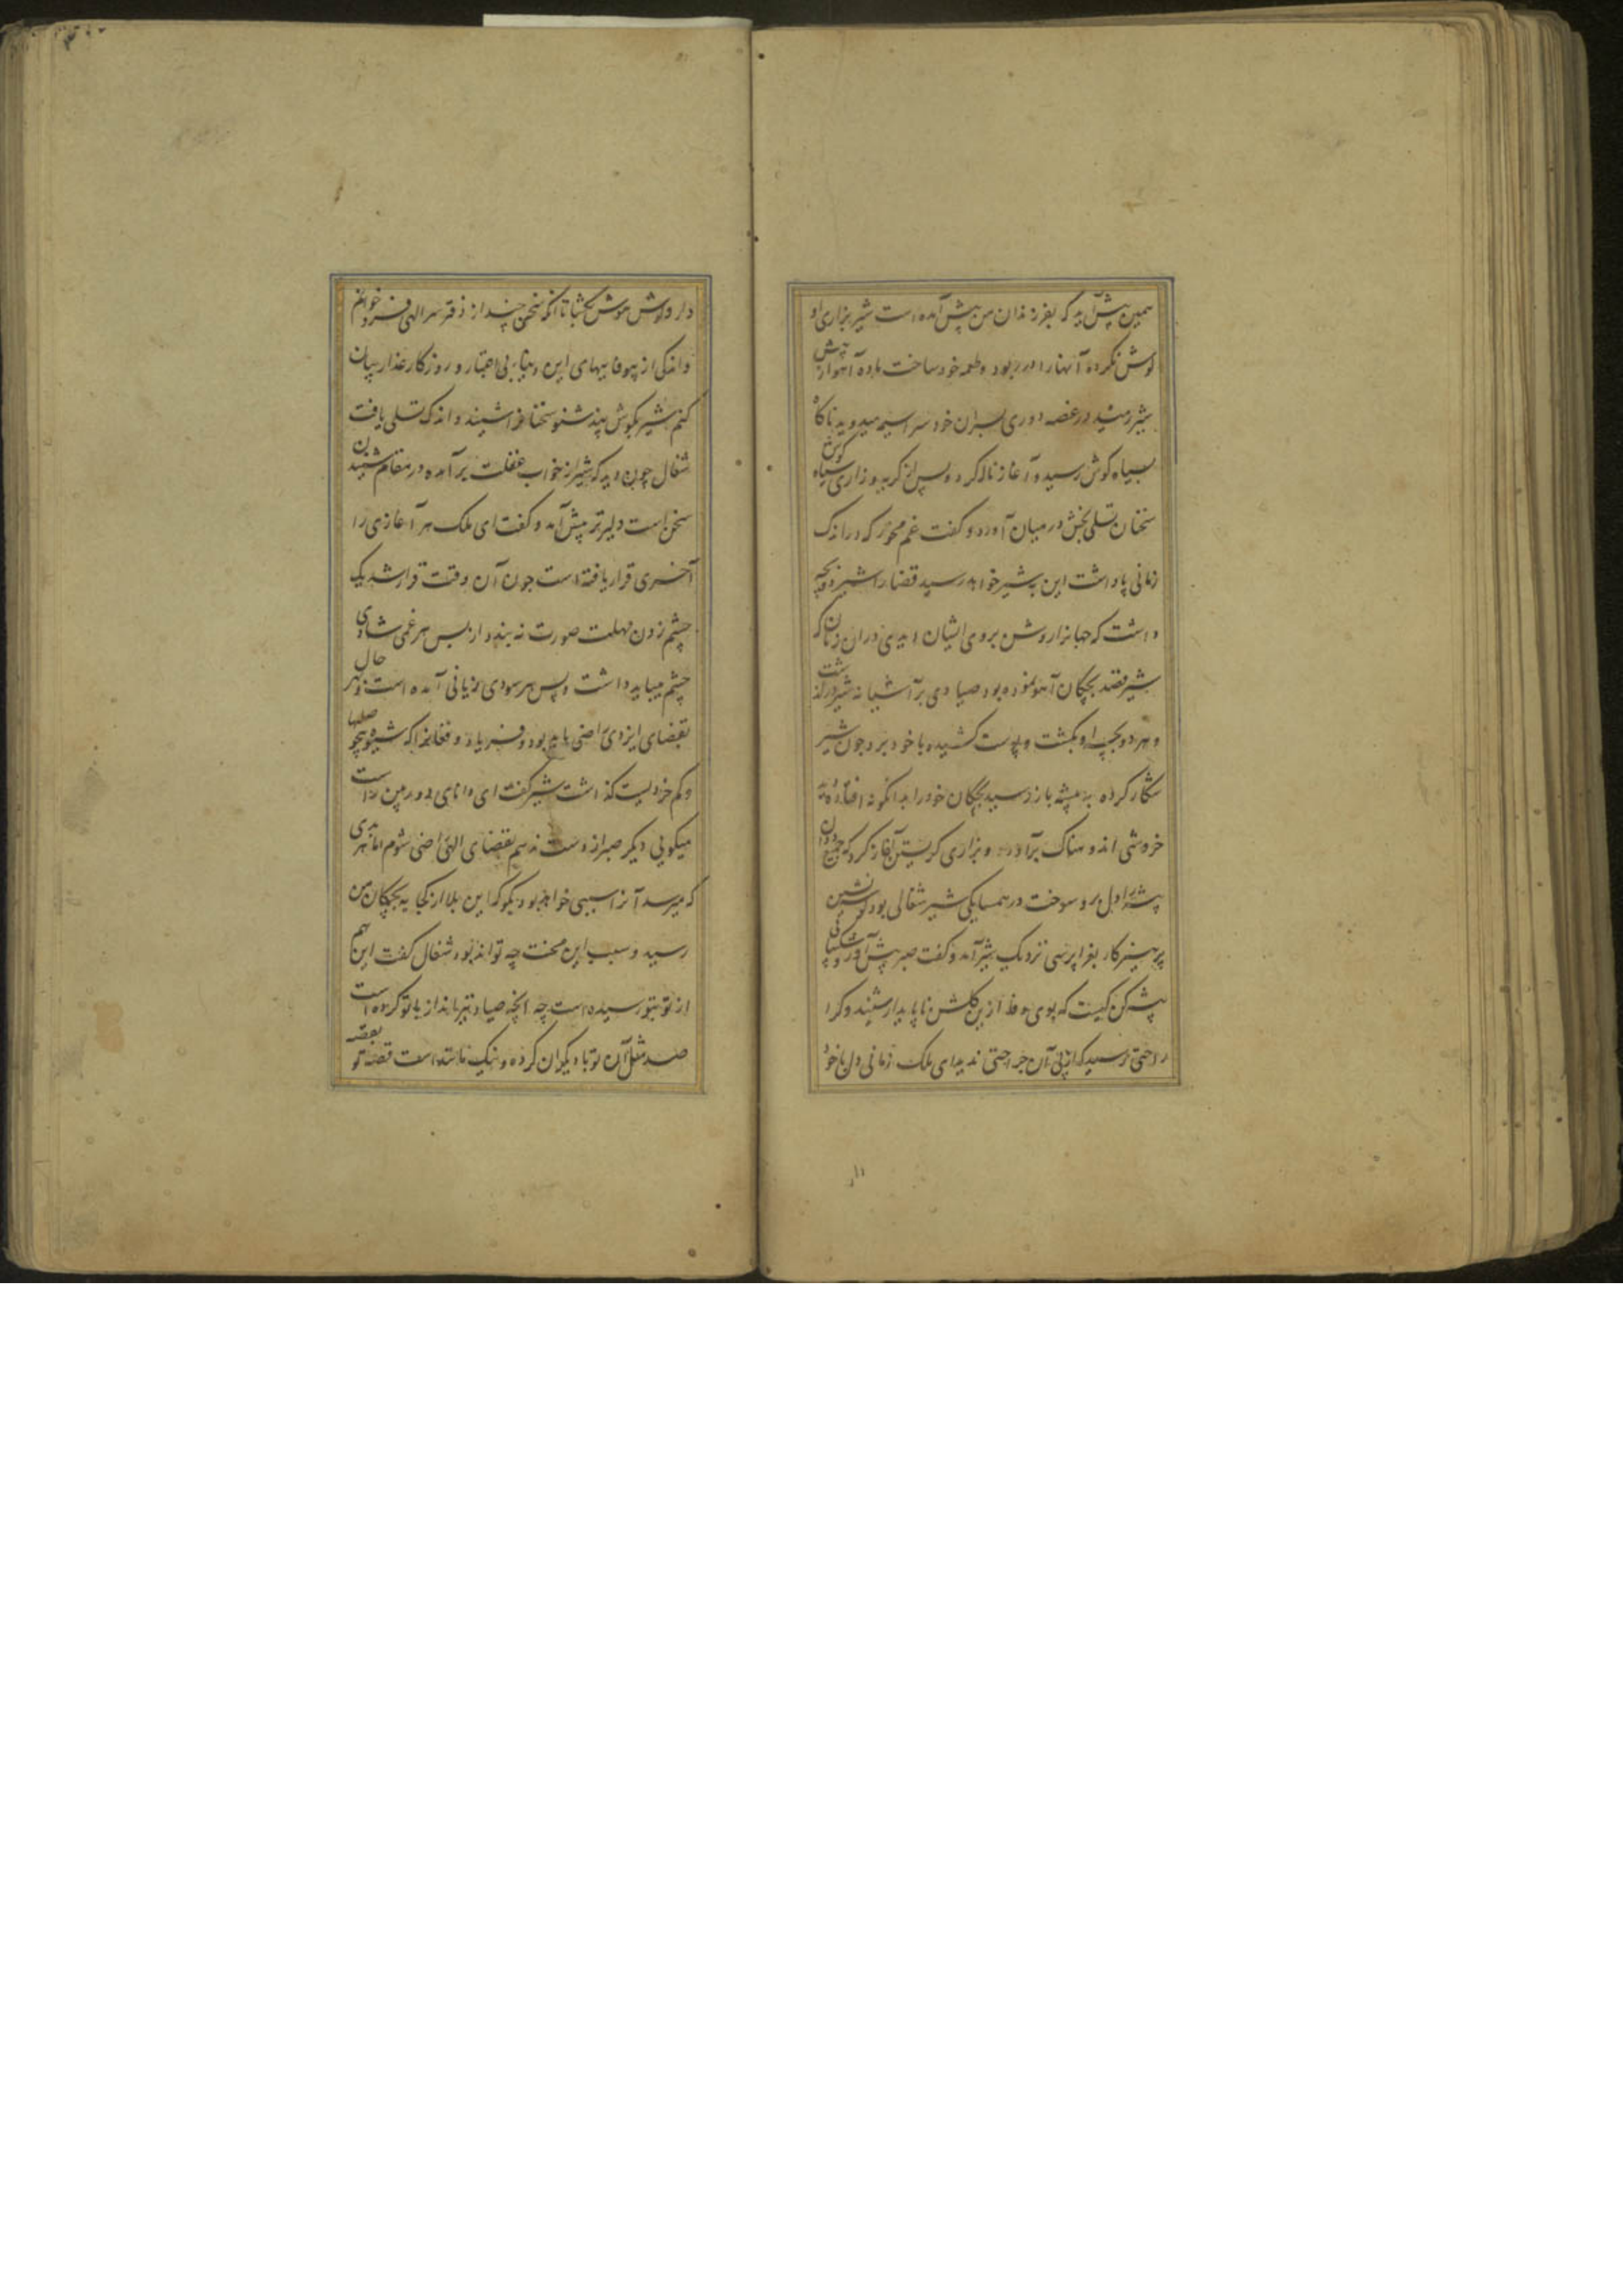 همین پیش آید که بفرزندان من پیش آمده است شیر بزاری او
گوش نکرده آنهارا در ربود و طعمه خود ساخت ماده آهو از پیش
شیر رمیده در غصه دوری پسران خود سراسیمه میدوید ناگاه
بسیاه گوش رسید و آغاز ناله کرد و پس از گریه و زاری سیاه گوش
سخنان تسلی بخش در میان آورد و گفت غم مخور که در اندک
زمانی پاداشت این به شیر خواهد رسید قضارا شیر دو بچه
داشت که جهانرا روشن بروی ایشان دیدی در آن زمان که
شیر قصد بچگان آهو نموده بود صیادی بر آشیانه شیر در گذشت
و هر دو بچه او بکشت و پوست کشیده با خود برد چون شیر
شکار کرده به بیشه باز رسید بچگان خود را بدانگونه افتاده
خروشی اندوهناک برآورد و بزاری گریستن آغاز کرد که
بیشه را دل برو سوخت در همسایگی شیر شغالی بود گوشه نشین
پرهیزکار بغرا پرسی نزدیک شیر آمد و گفت صبر پیش آور و شکیبائی
پیشه کن کیست که بوی وفا ازین گلشن ناپایدار شنید و کرا
راحتی رسید که از پی آن جراحتی ندید ای ملک زمانی دل باخود
دار و گوش هوش بگشا تا آنکه سخن چند از دفتر سر الهی فرو خوانم
و اندکی از بیوفاییهای این دنیا بی اعتبار و روزگار غدار بیان
کنم شیر بگوش پند شنو سخنانرا شنید و اندک تسلی یافت
شغال چون دید که شیر از خواب غفلت برآمده در مقام شنیدن
سخن است دلیرتر پیش آمد و گفت ای ملک هر آغازی را
آخری قرار یافته است چون آن وقت قرار شد یک
چشم زدن مهلت صورت نه بندد از پس هر غمی شادی
چشم میباید داشت و پس هر سودی زیانی آمده است در هر حال
بقضای ایزدی راضی باید بود و فریاد و فغانرا که شیوه بی حوصلها
و کم خردیست گذاشت شیر گفت ای دانای دوربین راست
میگویی دیگر صبر از دست ندهم بقضای الهی راضی شوم اما هر بدی
که میرسد آنرا سببی خواهد بود بگو که این بلا از کجا به بچگان من
رسید و سبب این محنت چه تواند بود شغال گفت این هم
از تو بتو رسیده است چه آنچه صیاد تیر انداز با تو کرده است
صد مثل آن تو با دیگران کرده و نیک مانند است قصه تو بقصه